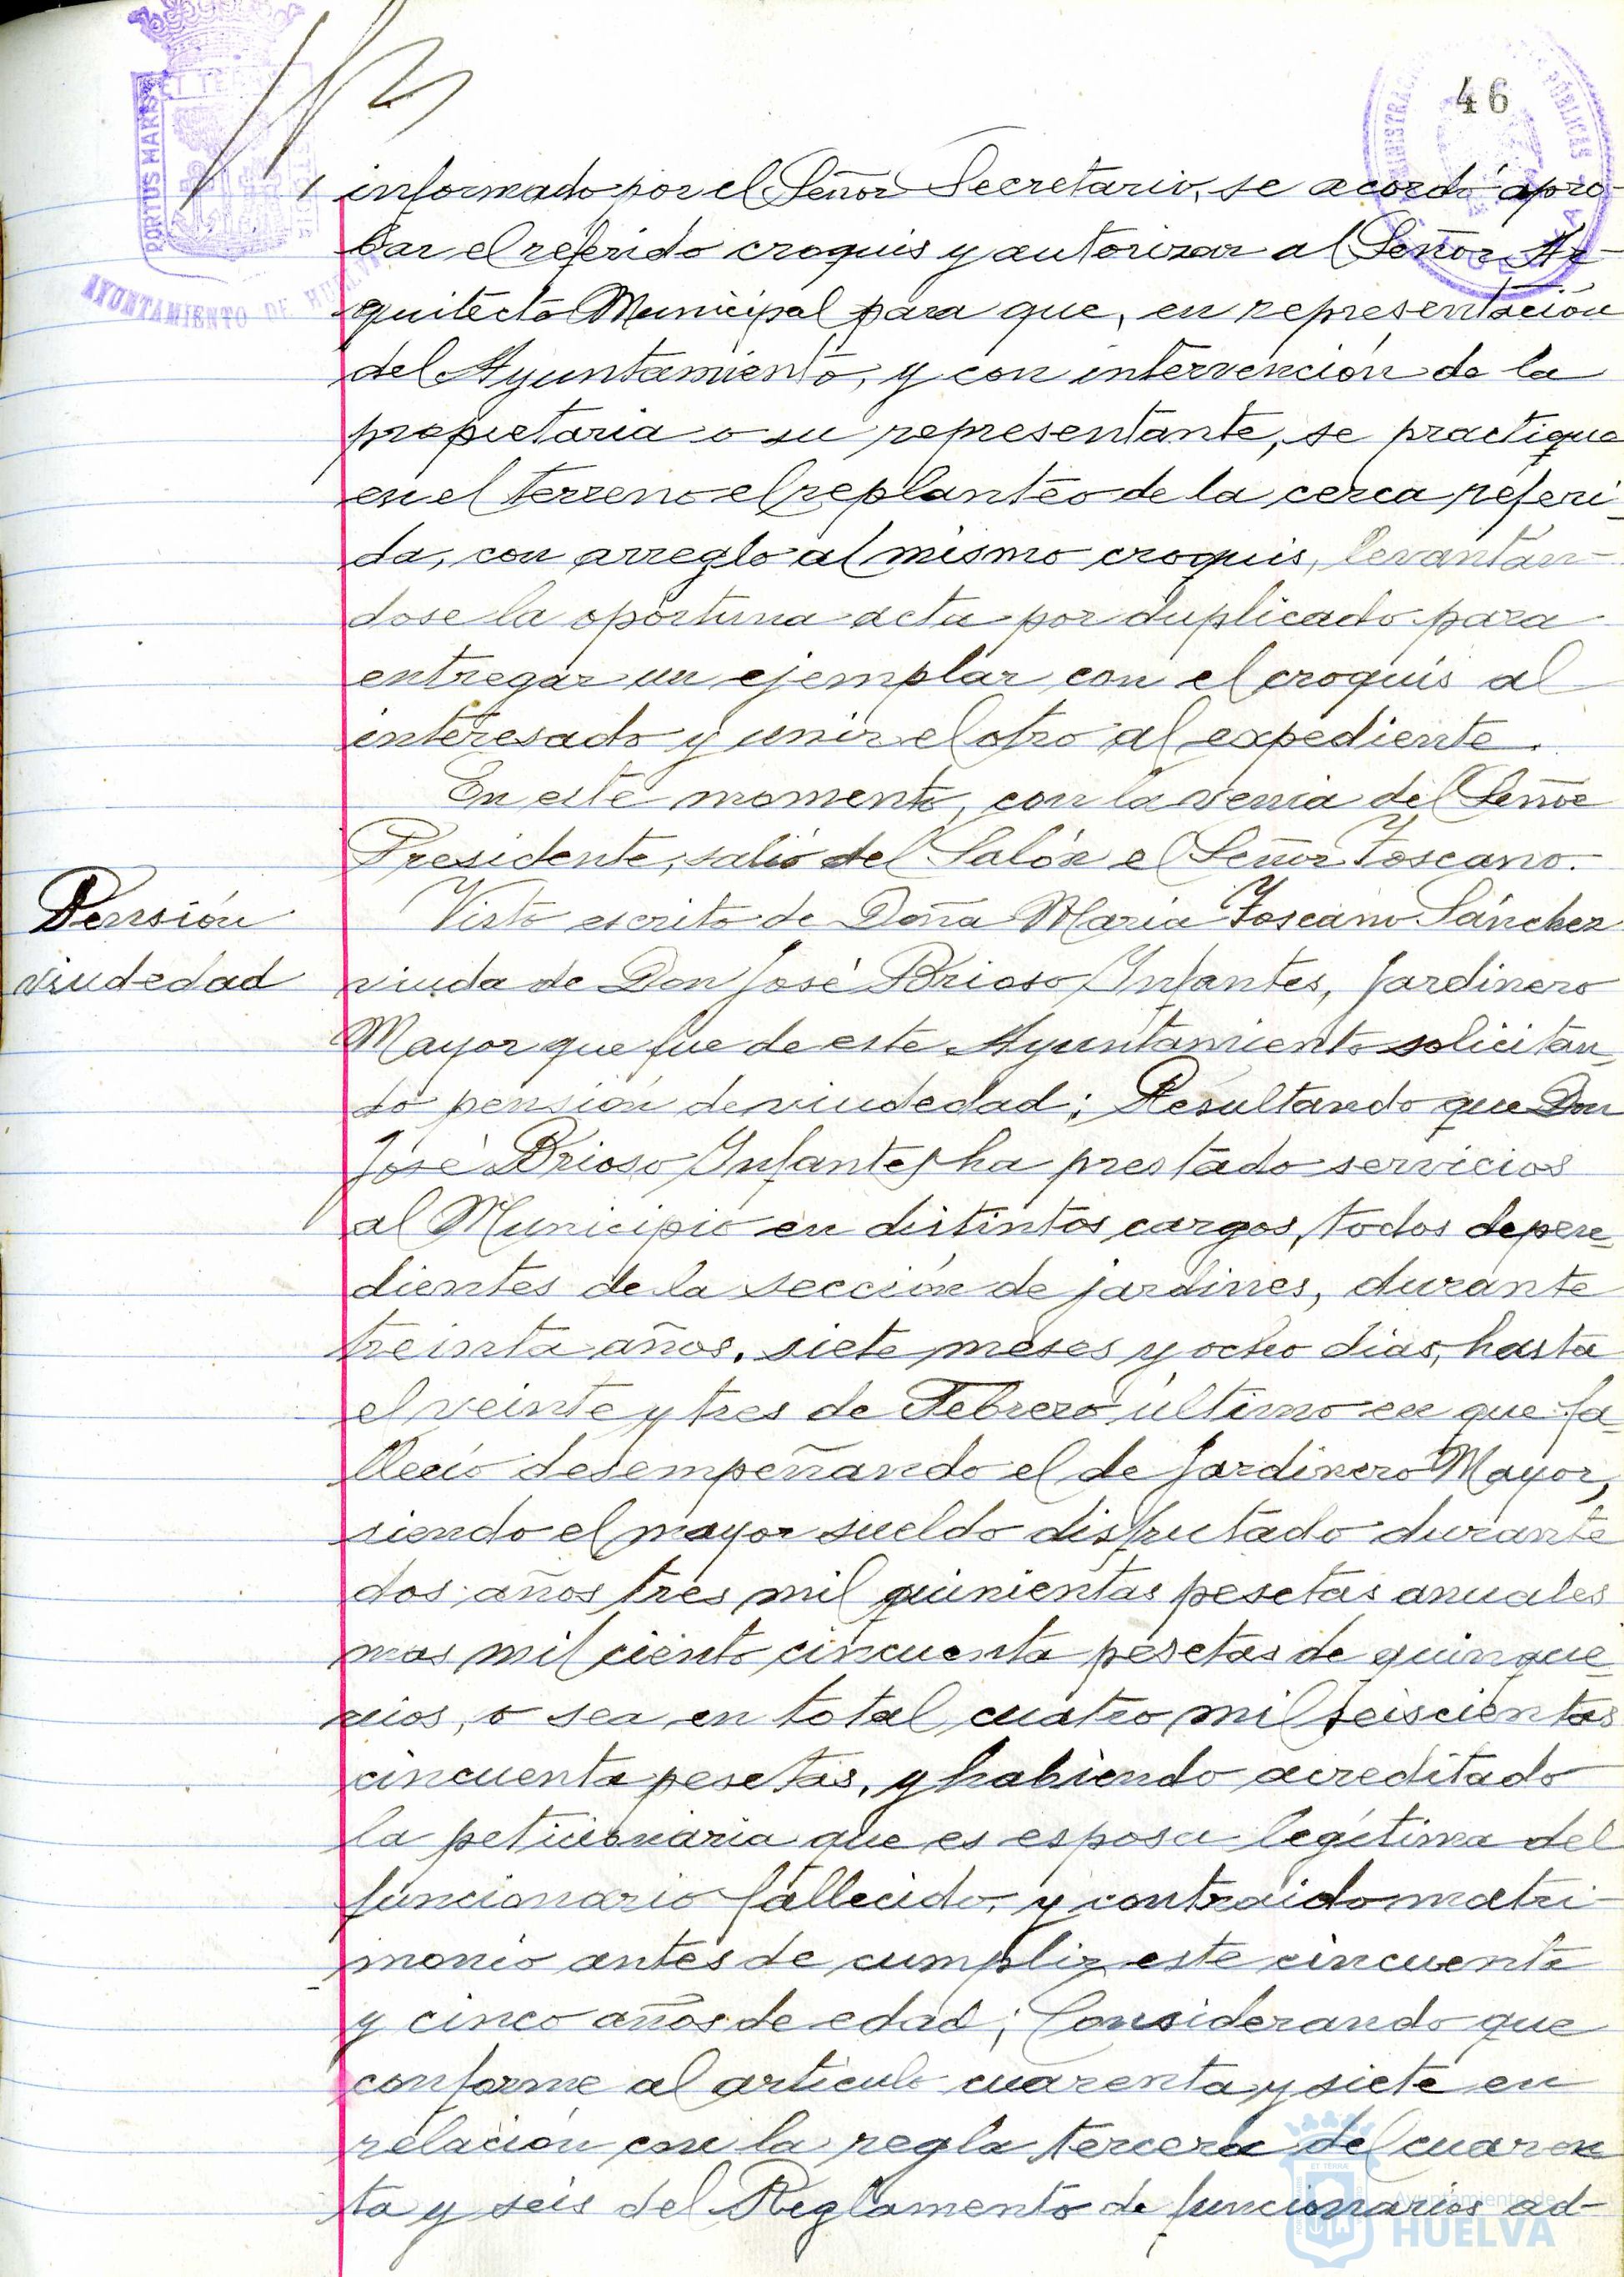 46
PORTUS MARIS ET TERRAE
AYUNTAMIENTO DE HUELVA
informado por el Señor Secretario, se acordó apro-
bar el referido croquis y autorizar al Señor Ar-
quitecto Municipal para que, en representación
del Ayuntamiento, y con intervención de la
propietaria o su representante, se practique
en el terreno el replanteo de la cerca referi-
da, con arreglo al mismo croquis, levantán-
dose la oportuna acta por duplicado para
entregar un ejemplar con el croquis al
interesado y unir el otro al expediente.
En este momento, con la venia del Señor
Presidente, salió del Salón el Señor Toscano.
Pensión
viudedad
Visto escrito de Doña María Toscano Sánchez
viuda de Don José Brioso Infantes, Jardinero
Mayor que fue de este Ayuntamiento solicitan-
do pensión de viudedad; Resultando que Don
José Brioso Infantes ha prestado servicios
al Municipio en distintos cargos, todos depen-
dientes de la sección de jardines, durante
treinta años, siete meses y ocho dias, hasta
el veinte y tres de Febrero último en que fa-
lleció desempeñando el de Jardinero Mayor,
siendo el mayor sueldo disfrutado durante
dos años tres mil quinientas pesetas anuales
mas mil ciento cincuenta pesetas de quinque-
nios, o sea en total cuatro mil seiscientas
cincuenta pesetas, y habiendo acreditado
la peticionaria que es esposa legítima del
funcionario fallecido, y contraido matri-
monio antes de cumplir este cincuenta
y cinco años de edad; Considerando que
conforme al artículo cuarenta y siete en
relación con la regla tercera del cuaren
ta y seis del Reglamento de funcionarios ad-
Ayuntamiento de
HUELVA